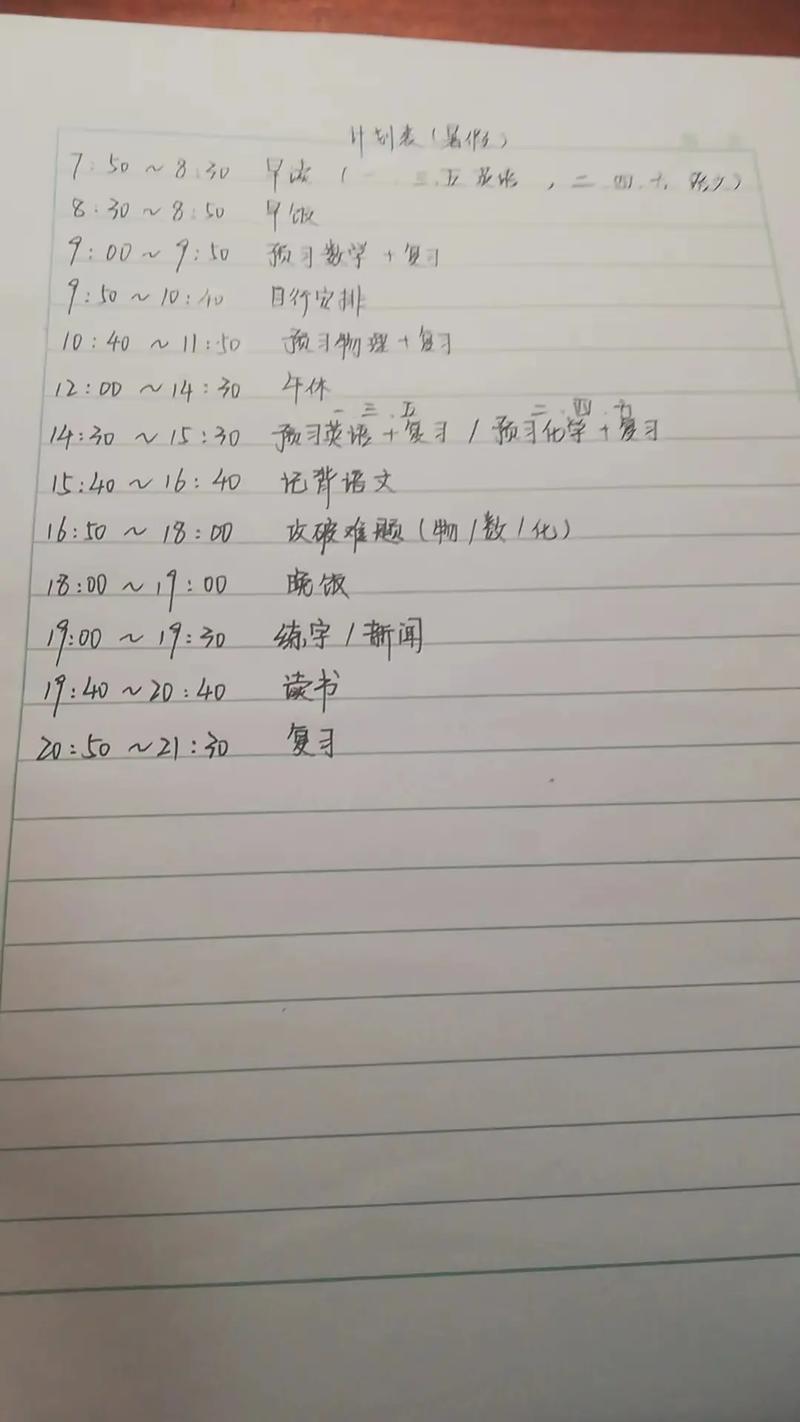 计划表(暑假)
7:50 ~ 8:30 早读(一.三.五英语,二.四.六语文)
8:30 ~ 8:50 早饭
9:00 ~ 9:50 预习数学+复习
9:50 ~ 10:40 自行安排
10:40 ~ 11:50 预习物理+复习
12:00 ~ 14:30 午休
一.三.五 二.四.六
14:30 ~ 15:30 预习英语+复习/预习化学+复习
15:40 ~ 16:40 记背语文
16:50 ~ 18:00 攻破难题(物/数/化)
18:00 ~ 19:00 晚饭
19:00 ~ 19:30 练字/新闻
19:40 ~ 20:40 读书
20:50 ~ 21:30 复习